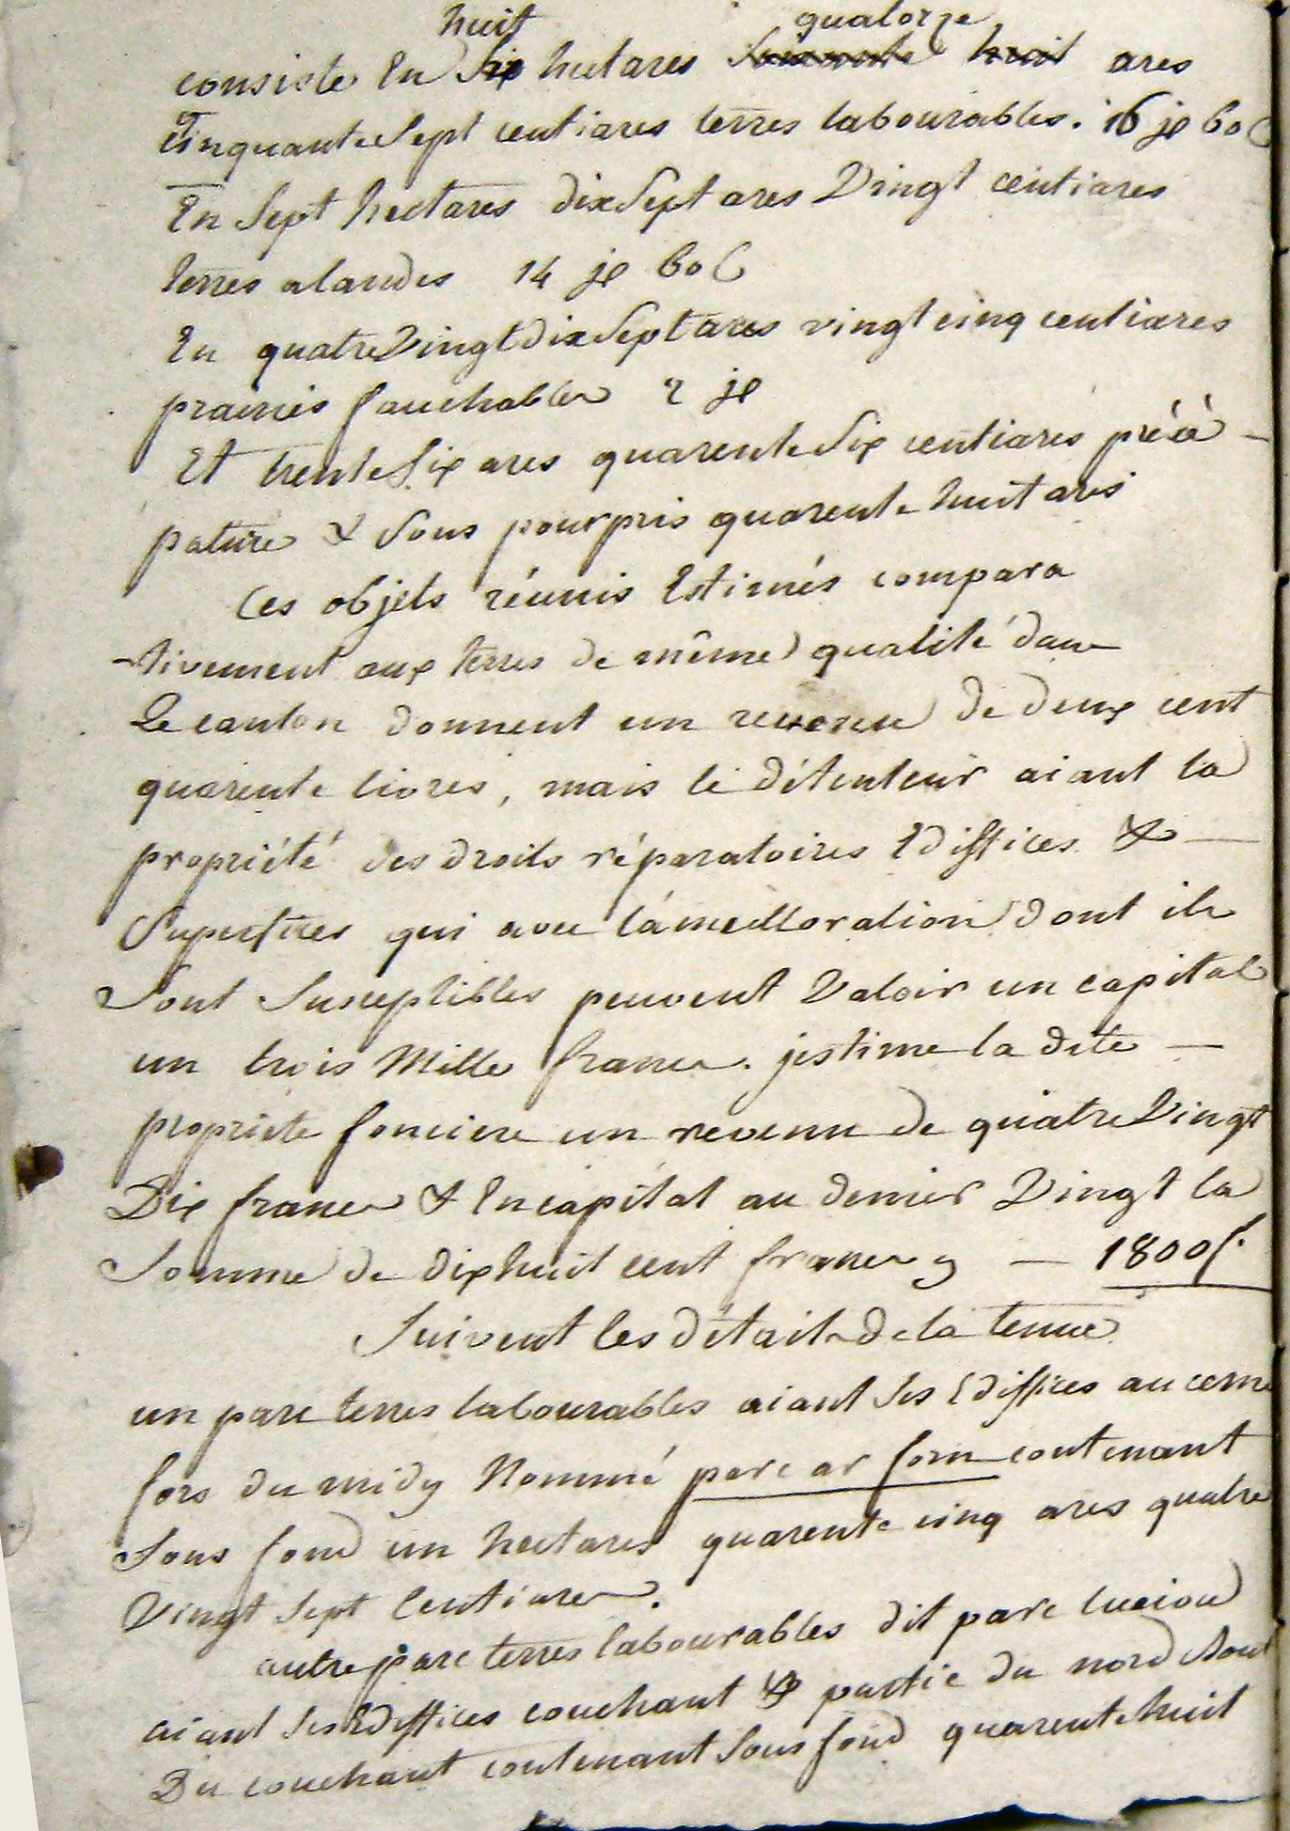 huit quatorze
consiste En Six hectares soixante huit ares
Cinquante Sept centiares terres labourables. 16 je 60 C
En Sept hectares dix Sept ares Vingt centiares
terres a landes 14 je 60 C
En quatre Vingt dix Sept ares vingt cinq centiares
prairies fauchables 2 je
Et trente Six ares quarente Six centiares pré à
pature & Sous pourpris quarente huit ares
Ces objets réunis Estimés compara
-tivement aux terres de même qualité dans
Le canton donnent un revenu de deux cent
quarente livres, mais le détenteur aiant la
propriété des droits réparatoires Ediffices &
Superfices qui avec l'amedlloration dont ils
Sont Susceptibles peuvent Valoir un capital
un trois Mille francs. jestime la dite
propriete fonciere un revenu de quatre Vingt
Dix francs & En capital au denier Vingt la
Somme de dix huit cent francs — 1800 f.
Suivent les détails de la tenue
un parc terres labourables aiant Ses Ediffices au cerne
fors du midy Nommé parc ar forn contenant
Sous fond un hectares quarente cinq ares quatre
Vingt Sept Centiares.
autre parc terres labourables dit parc
aiant Ses Ediffices couchant & partie du nord
Du couchant contenant Sous fond quarente huit